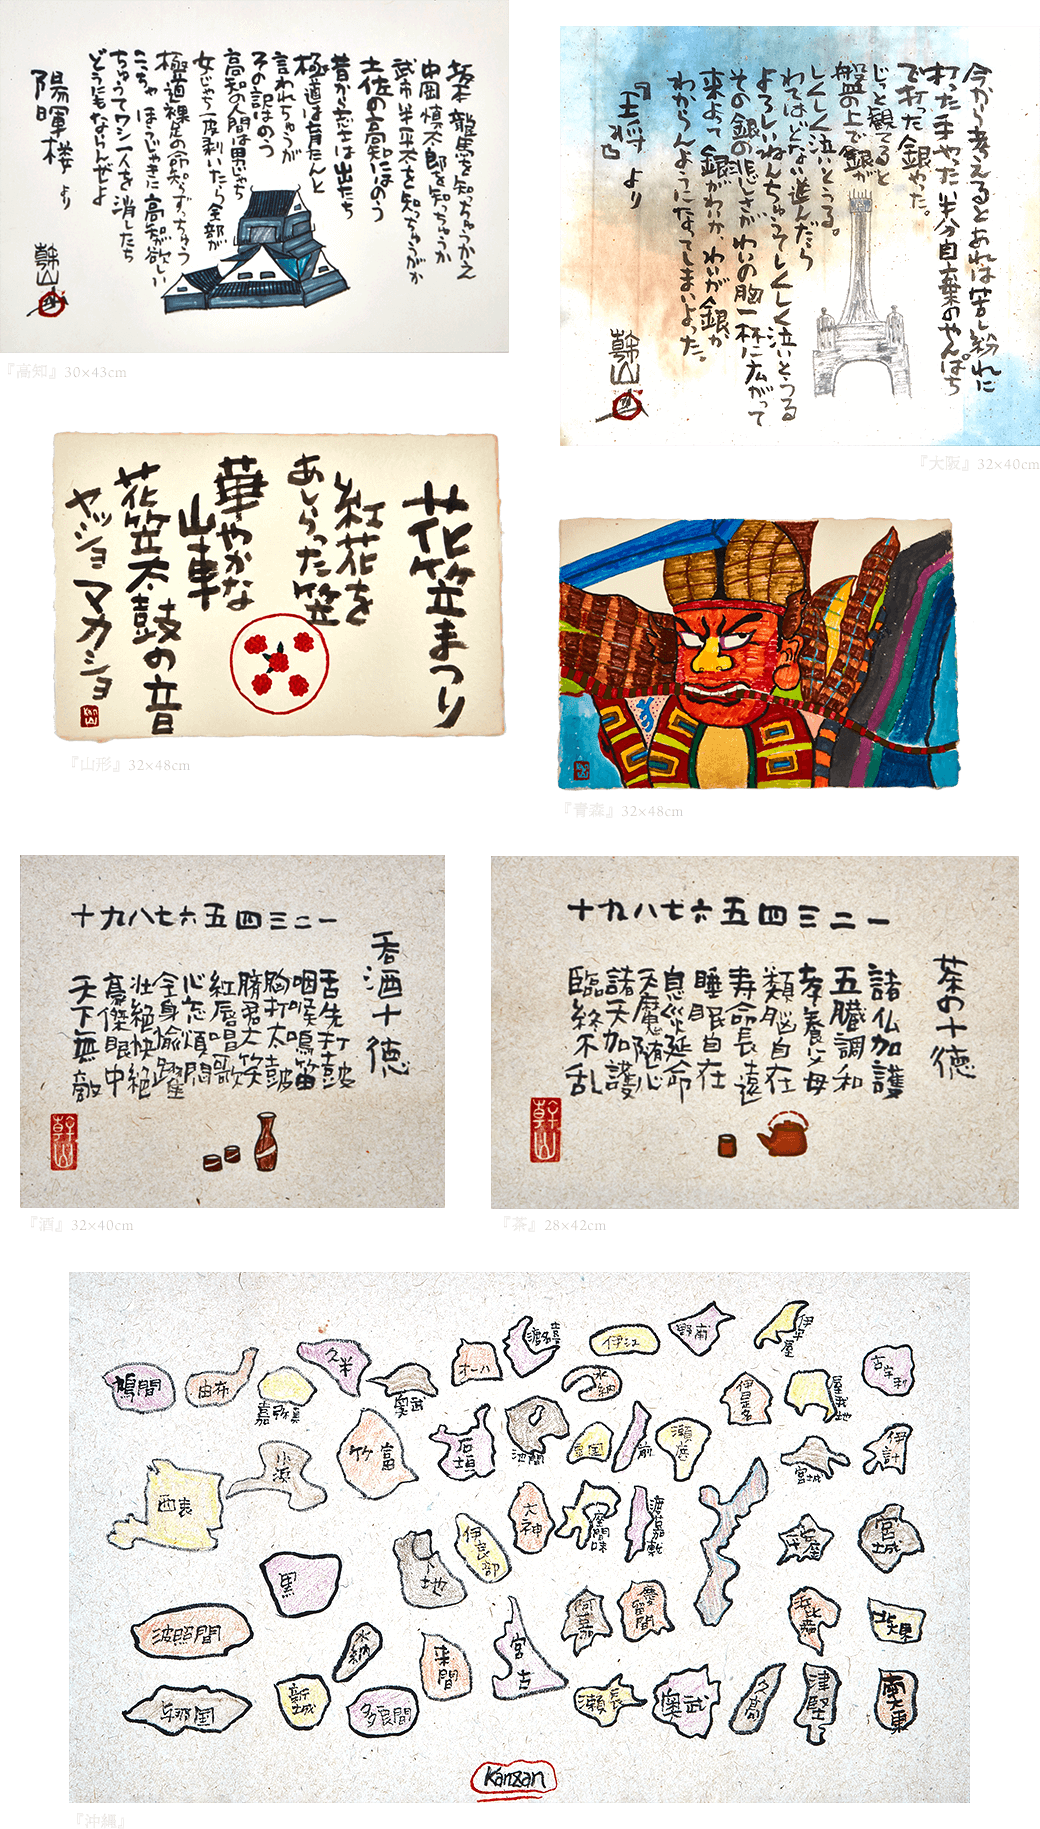 坂本龍馬を知っちゅうかえ
中岡慎太郎を知っちゅうか
武市半平太を知っちゅうがか
土佐の高知にはのう
昔から
極道は育たんと
言われちゅうが
その訳はのう
高知の人間は男じゃち
女じゃち一皮剥いたら全部が
極道
こっちゃ
ちゅうてワシ一人を消したち
どうにもならんぜよ
陽暉楼 より
幹山
『高知』30×43cm
今から考えるとあれは苦し紛れに
打った手やった半分自棄のやんぱち
で打った銀やった。
じっと観てると
盤の上で銀が
しくしく泣いとうる。
わてはどない進んだら
よろしいねんちゅうてしくしく泣いとうる
その銀の悲しさがわいの胸一杯に広がって
来よって銀がわいか、わいが銀か
わからんようになってしまいよった。
『王将』より
幹山
『大阪』32×40cm
花笠まつり
紅花を
あしらった笠
華やかな
山車
花笠太鼓の音
ヤッショマカショ
『山形』32×48cm
『青森』32×48cm
十九八七六五四三二一
呑酒十徳
舌先打鼓
咽喉鳴笛
胸打太鼓
臍君大笑
紅唇唱歌
心忘煩悶
全身愉躍
壮絶快絶
豪傑眼中
天下無敵
幹山
『酒』32×40cm
十九八七六五四三二一
茶の十徳
諸仏加護
五臓調和
孝養父母
煩悩自在
寿命長遠
睡眠自在
息災延命
天魔随心
諸天加護
臨終不乱
幹山
『茶』28×42cm
鳩間
由布
嘉弥真
久米
奥武
オーハ
渡名喜
伊江
野甫
伊平屋
古宇利
水納
伊是名
屋我地
竹富
石垣
池間
前
瀬底
宮城
伊計
小浜
西表
大神
座間味
渡嘉敷
平安座
宮城
伊良部
下地
黒
阿嘉
慶留間
浜比嘉
北大東
波照間
水納
来間
宮古
与那国
新城
多良間
瀬長
奥武
久高
津堅
南大東
Kanzan
『沖縄』